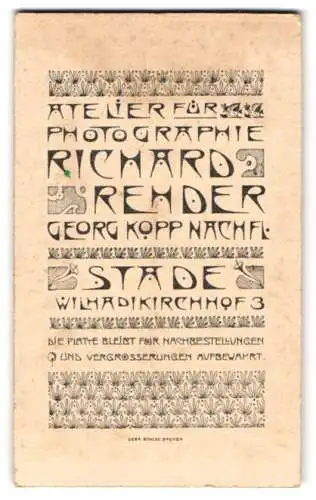 ATELIER FÜR
PHOTOGRAPHIE
RICHARD
REHDER
GEORG KOPP NACHFL.
STADE
WILHADIKIRCHHOF 3
DIE PLATTE BLEIBT FUER NACHBESTELLUNGEN
UND VERGRÖSSERUNGEN AUFBEWAHRT.